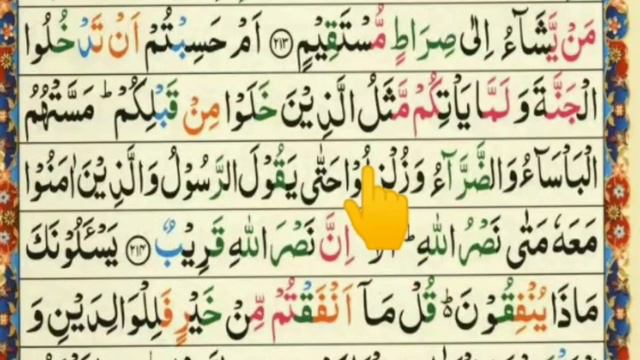 مَنْ يَّشَآءُ اِلٰى صِرَاطٍ مُّسْتَقِيْمٍ ﴿۲۱۳﴾ اَمْ حَسِبْتُمْ اَنْ تَدْخُلُوا
الْجَنَّةَ وَ لَمَّا يَاْتِكُمْ مَّثَلُ الَّذِيْنَ خَلَوْا مِنْ قَبْلِكُمْ ؕ مَسَّتْهُمُ
الْبَاْسَآءُ وَالضَّرَّآءُ وَ زُلْزِلُوْا حَتّٰى يَقُوْلَ الرَّسُوْلُ وَالَّذِيْنَ اٰمَنُوْا
مَعَهٗ مَتٰى نَصْرُ اللّٰهِ ؕ اِنَّ نَصْرَ اللّٰهِ قَرِيْبٌ ﴿۲۱۴﴾ يَسْـَٔلُوْنَكَ
مَاذَا يُنْفِقُوْنَ ؕ قُلْ مَآ اَنْفَقْتُمْ مِّنْ خَيْرٍ فَلِلْوَالِدَيْنِ وَ